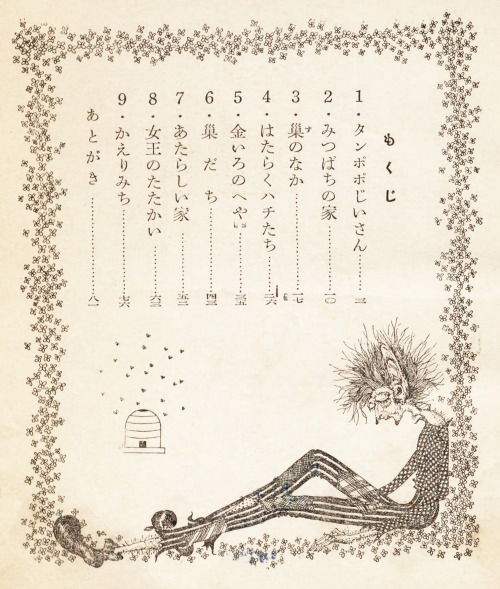 もくじ
1・タンポポじいさん……三
2・みつばちの家……一〇
3・巣のなか……一七
4・はたらくハチたち……二六
5・金いろのへや……三五
6・巣だち……四三
7・あたらしい家……五二
8・女王のたたかい……六三
9・かえりみち……七六
あとがき……八一